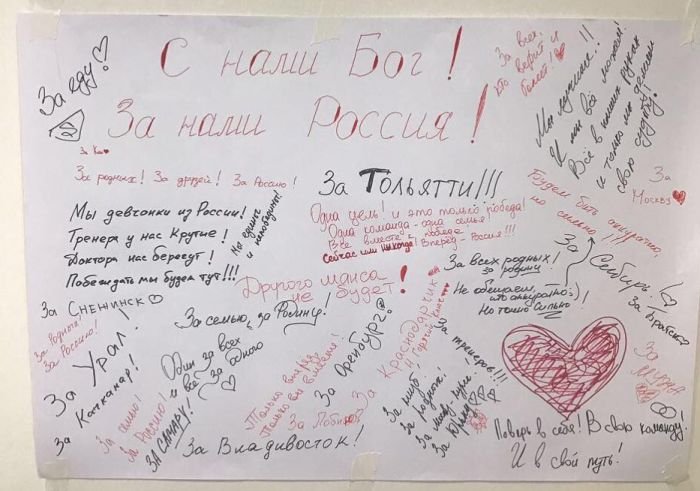 С нами Бог!
За нами Россия!
За еду!
За всех,
кто верит и
болеет!
Мы лучшие!!
И мы всё можем!
Всё в наших руках
и только мы делаем
свою судьбу!
За родных! За друзей! За Россию!
За Тольятти!!!
За
Москву
Мы девчонки из России!
Тренера у нас Крутые!
Доктора нас берегут!
Побеждать мы будем тут!!!
Мы едины
и непобедимы!
Одна цель! и это только победа!
Одна команда - одна семья!
Все вместе к победе
Сейчас или никогда! Вперёд - Россия!!!
Будем бить аккуратно,
но сильно!!!
Другого шанса
не будет!
За всех родных!
за родину!
Не обещаем,
бить аккуратно:)
Но точно Сильно
За
Сибирь
За Братск!
За Снежинск
За Родных!
За Россию!
За Урал!
За семью, за Родину!
За Оренбург?
Краснодарчик
г. Горячий Ключ
За тренеров!!!
Один за всех
и все за одного
Только вперёд
Только вместе!
За
Качканар!
За семью!
За Россию!
ЗА САМАРУ!
За Владивосток!
За
За клуб!
За родных!
За
Поверь в себя! В свою команду!
И в свой путь!